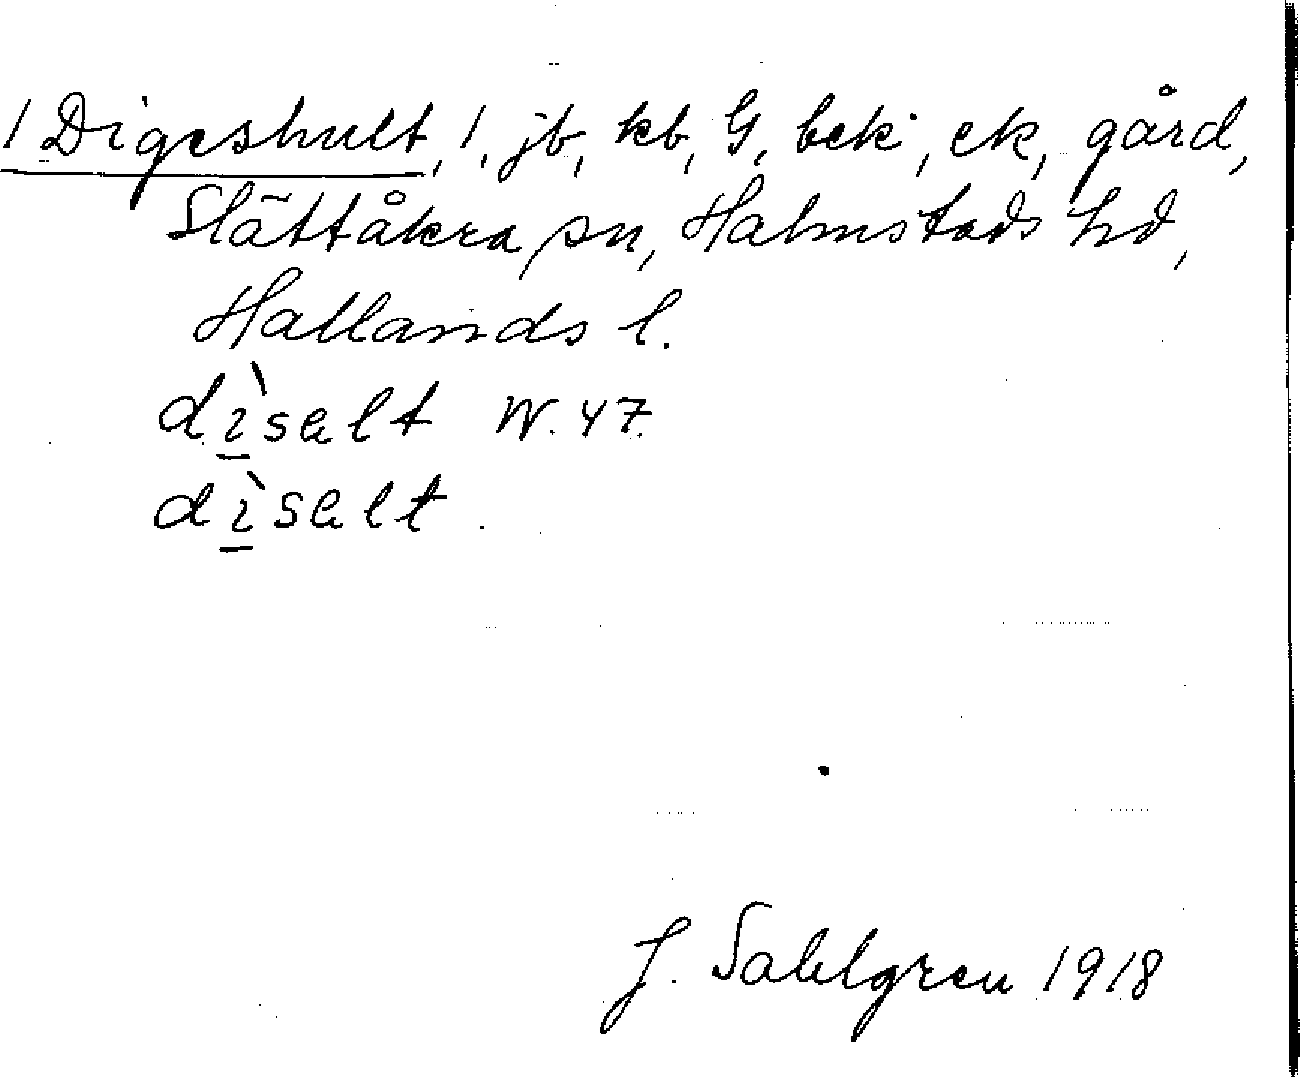 1 Digeshult, 1, jb, kb, G, bek, ek, gård,
Slättåkra sn, Halmstads hd,
Hallands l.
dìsalt W. 47.
dìsalt.
J. Sahlgren 1918